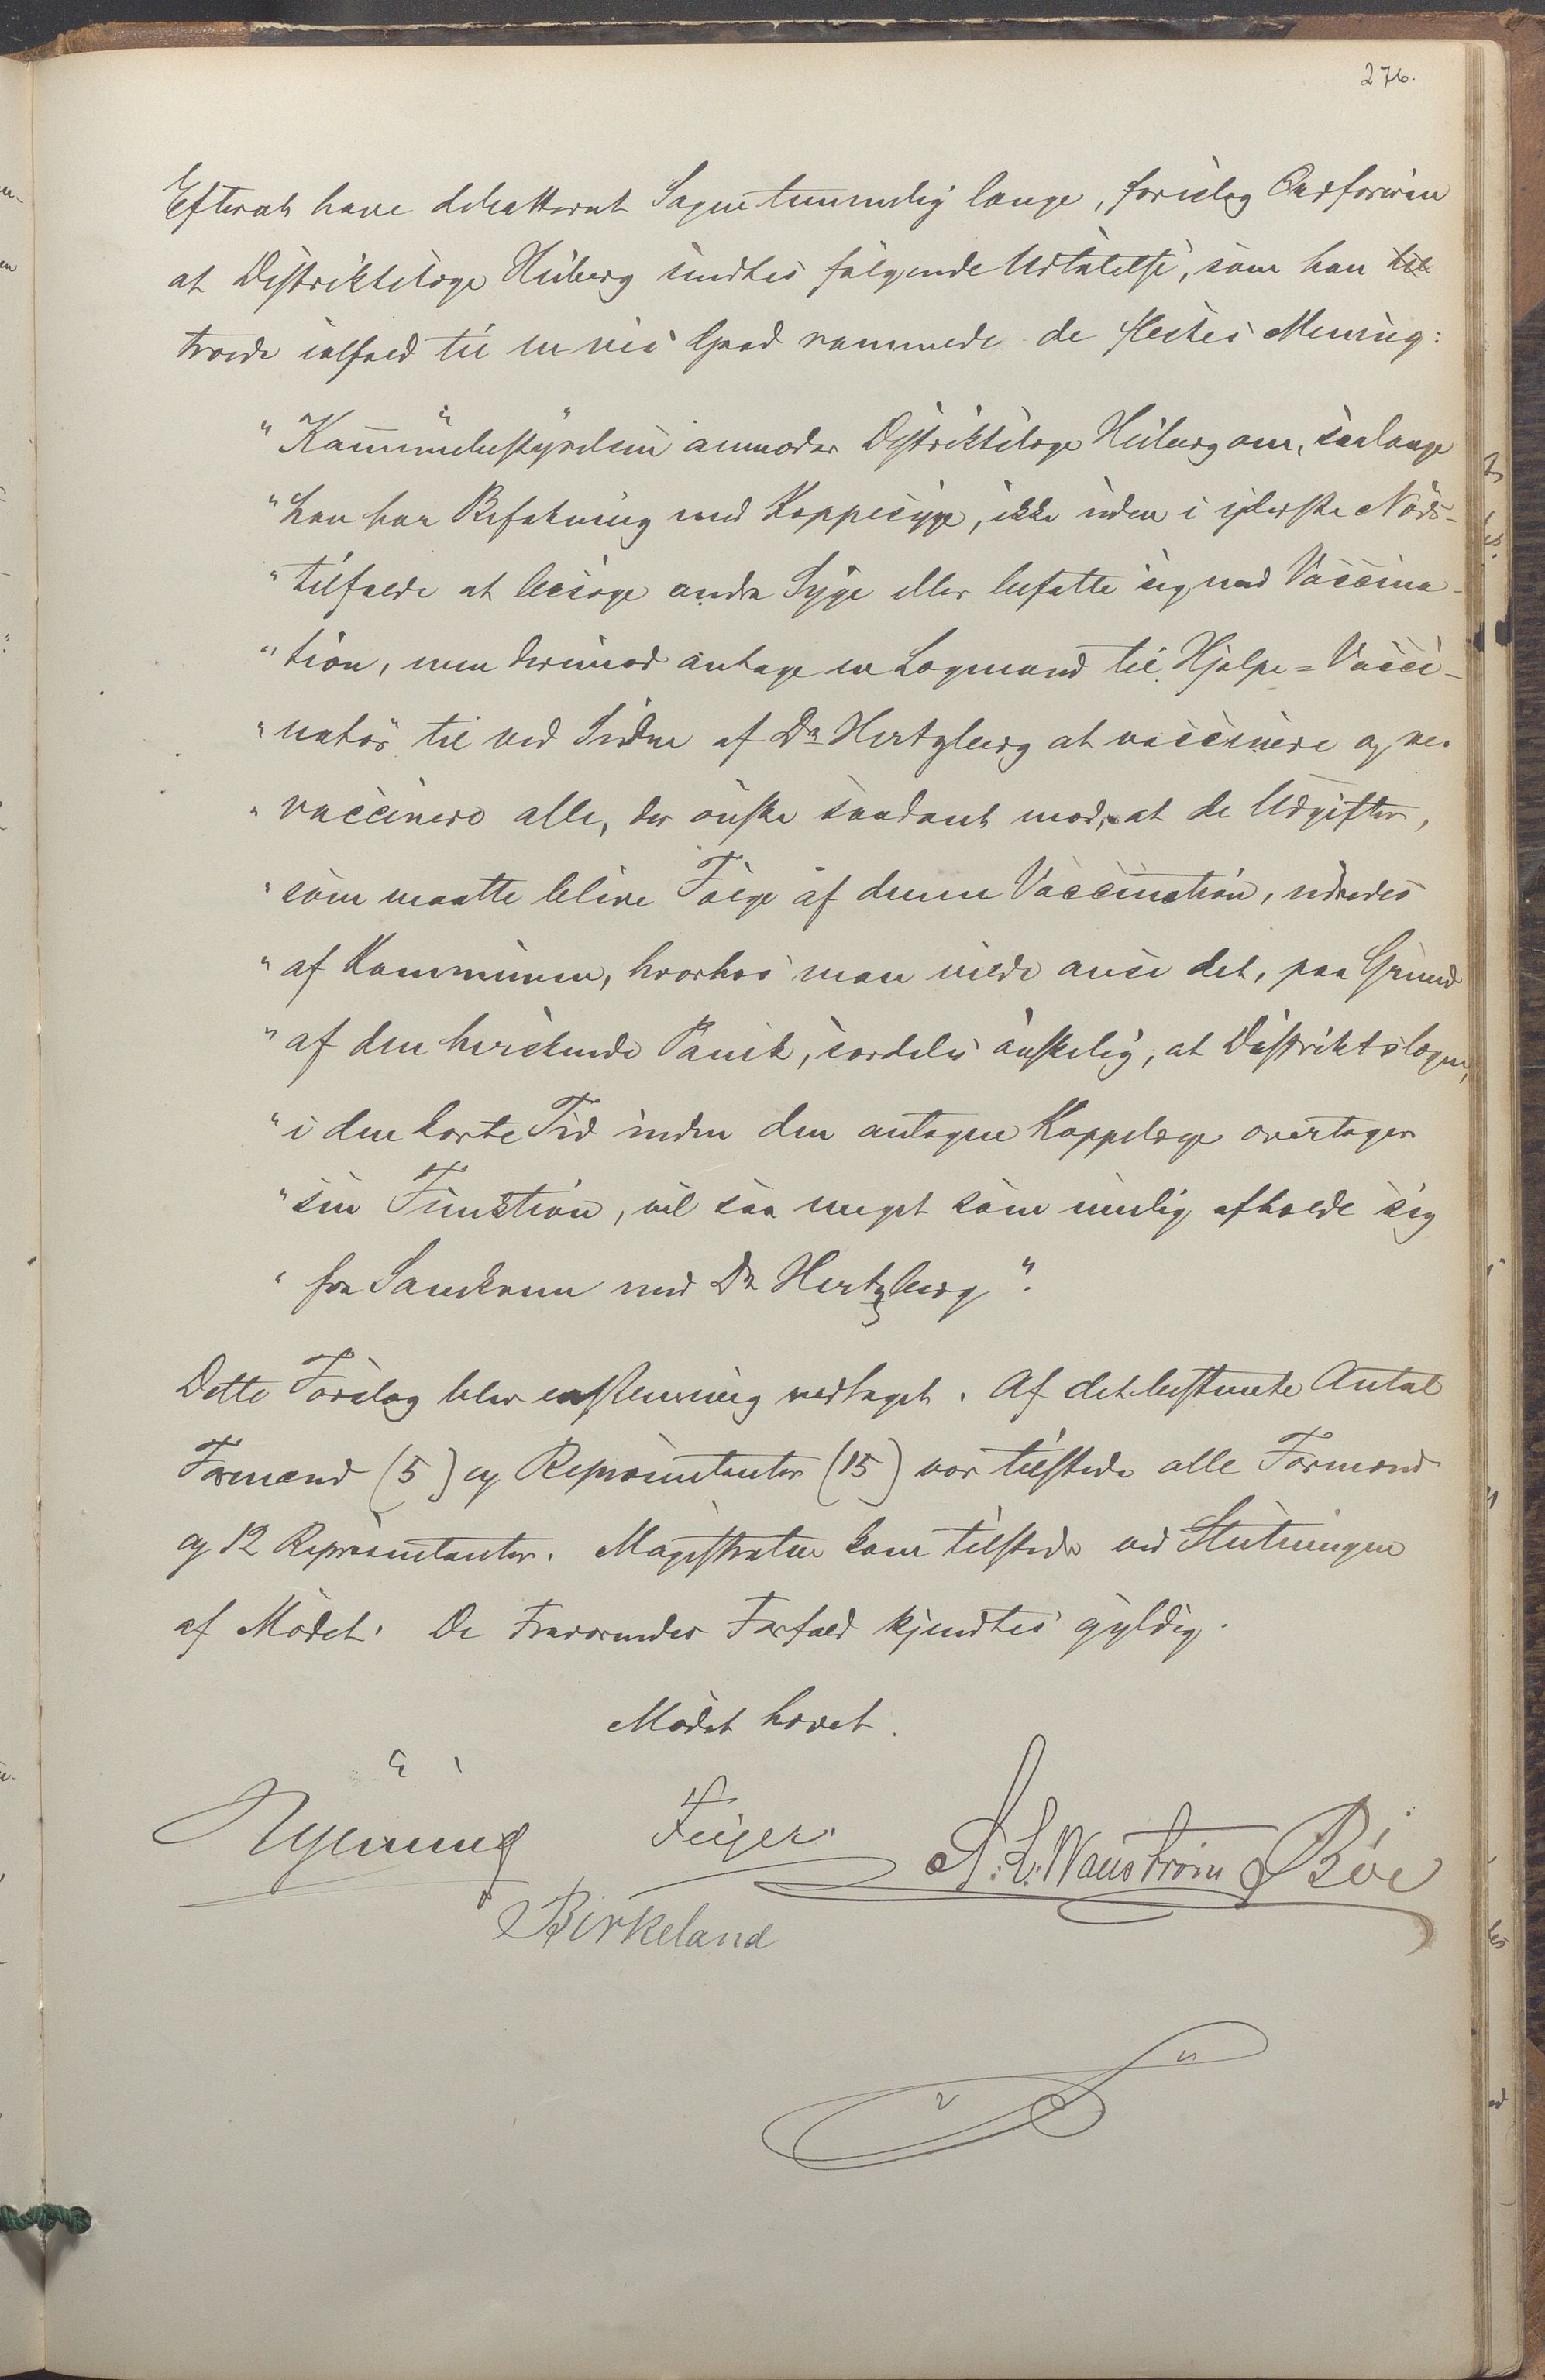 276.
Efterat have debatteret Sagen temmelig længe, foreslog Ordføreren
at Distriktslæge Heiberg sendtes følgende Udtalelse, som han til
troede ialfald til en vis Grad rammede de flestes Mening:
"Kommunebestyrelsen anmoder Distriktslæge Heiberg om, saalænge
"han har Befatning med Koppesyge, ikke uden i yderste Nøds-
"tilfælde at besøge andre Syge eller befatte sig med Vaccina-
"tion, men derimod antage en Lægmand til Hjælpe=Vacci-
"natør til ved Siden af Dr Hertzberg at vaccinere og re-
"vaccinere alle, der ønske saadant mod, at de Udgifter,
"som maatte blive Følge af denne Vaccination, udredes
"af Kommunen, hvorhos man vilde anse det, paa Grund
"af den herskende Panik, særdeles ønskelig, at Distriktslægen,
"i den korte Tid inden den antagne Koppelæge overtager
"sin Funktion, vil saa meget som mulig afholde sig
"fra Samkvem med Dr Hertzberg".
Dette Forslag blev enstemmig vedtaget. Af det bestemte Antal
Formænd (5) og Repræsentanter (15) var tilstede alle Formænd
og 12 Repræsentanter. Magistraten kom tilstede ved Slutningen
af Mødet. De Fraværendes Forfald kjendtes gyldig.
Mødet hævet.
Feyer. A. L. Waustrøm Bøe
Birkeland